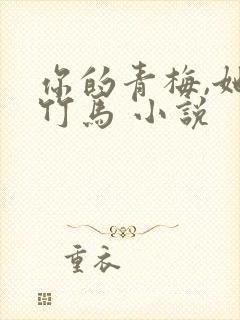 你的青梅,她
竹马 小説
重衣